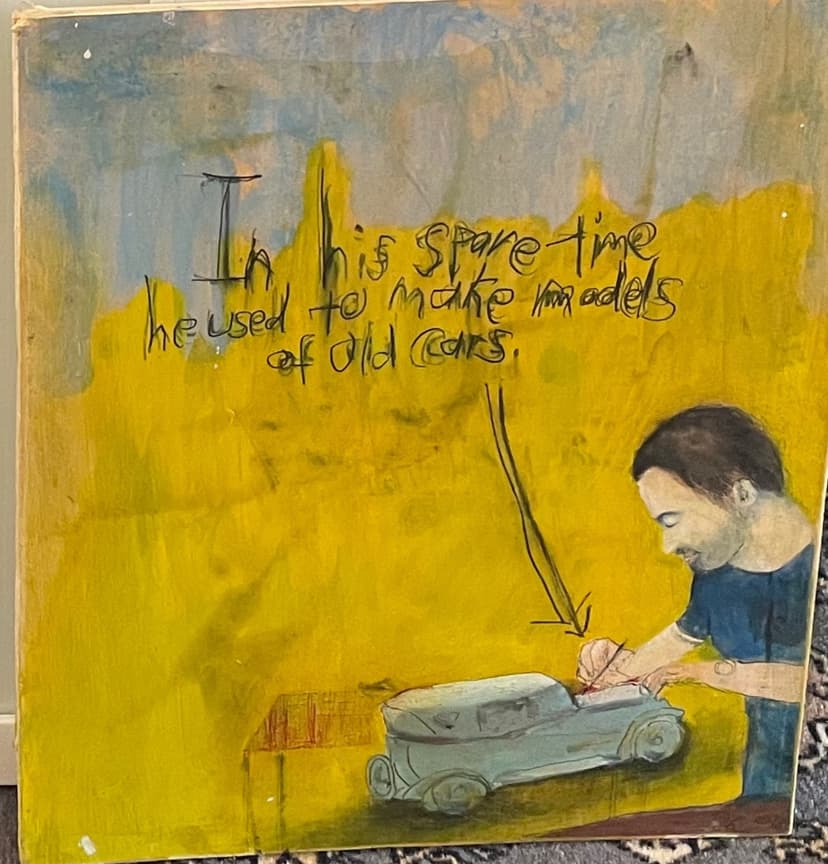 In his spare time
he used to make models
of old cars.